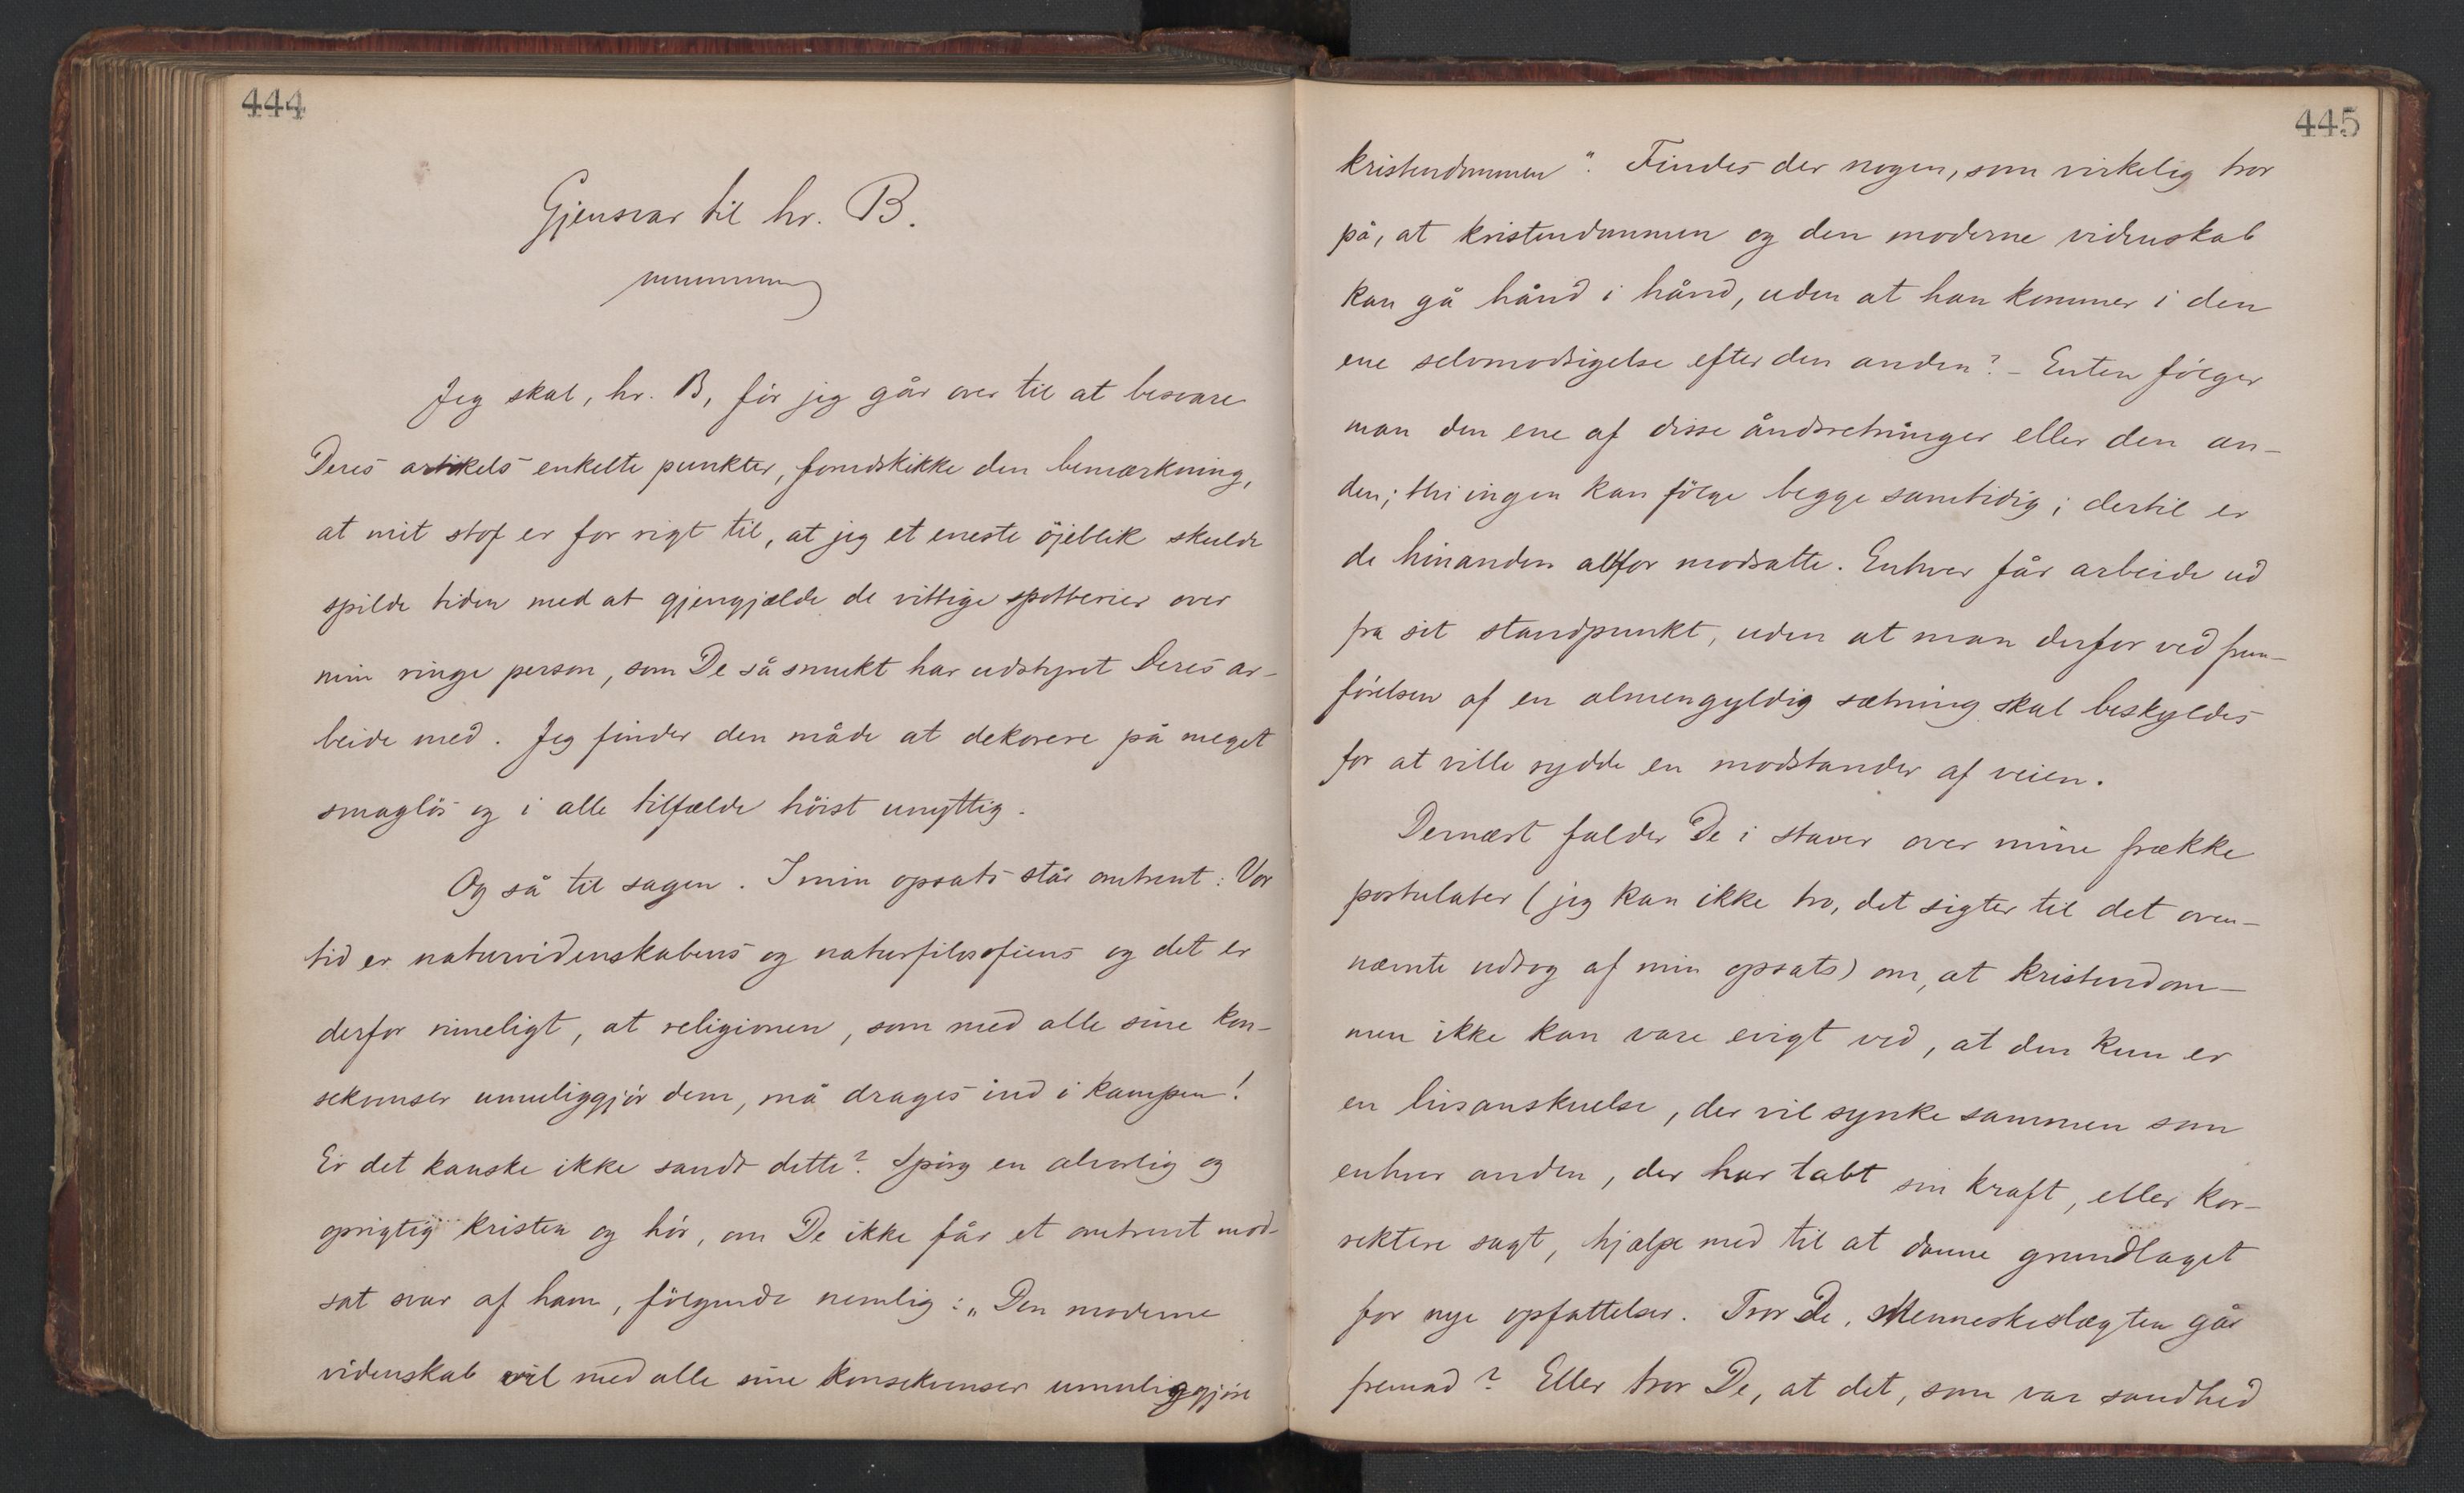 444
Gjensvar til hr. B.
Jeg skal, hr. B, för jeg går over til at besvare
Deres artikels enkelte punkter, forudskikke den bemærkning,
at mit stof er for rigt til, at jeg et eneste öjeblik skulde
spilde tiden med at gjengjælde de vittige spotterier over
min ringe person, som De så smukt har udstyret Deres ar-
beide med. Jeg finder den måde at dekorere på meget
smaglös og i alle tilfælde höist unyttig.
Og så til sagen. I min opsats står omtrent: Vor
tid er naturvidenskabens og naturfilosofiens og det er
derfor rimeligt, at religionen, som med alle sine kon-
sekvenser umuliggjör dem, må drages ind i kampen!
Er det kanske ikke sandt dette? Spörg en alvorlig og
oprigtig kristen og hör, om De ikke får et omtrent mod-
sat svar af ham, fölgende nemlig: „Den moderne
videnskab vil med alle sine konsekvenser umuliggjöre
445
kristendommen". Findes der nogen, som virkelig tror
på, at kristendommen og den moderne videnskab
kan gå hånd i hånd, uden at han kommer i den
ene selvmodsigelse efter den anden? - Enten fölger
man den ene af disse åndsretninger eller den an-
den; thi ingen kan fölge begge samtidig; dertil er
de hinanden altfor modsatte. Enhver får arbeide ud
fra sit standpunkt, uden at man derfor ved frem-
förelsen af en almengyldig sætning skal beskyldes
for at ville rydde en modstander af veien.
Dernæst falder De i staver over mine frække
postulater (jeg kan ikke tro, det sigter til det oven-
nævnte udtog af min opsats) om, at kristendom-
men ikke kan vare evigt ved, at den kun er
en livsanskuelse, der vil synke sammen som
enhver anden, der har tabt sin kraft, eller kor-
rektere sagt, hjælpe med til at danne grundlaget
for nye opfattelser. Tror De, Menneskeslægten går
fremad? Eller tror De, at det, som var sandhed